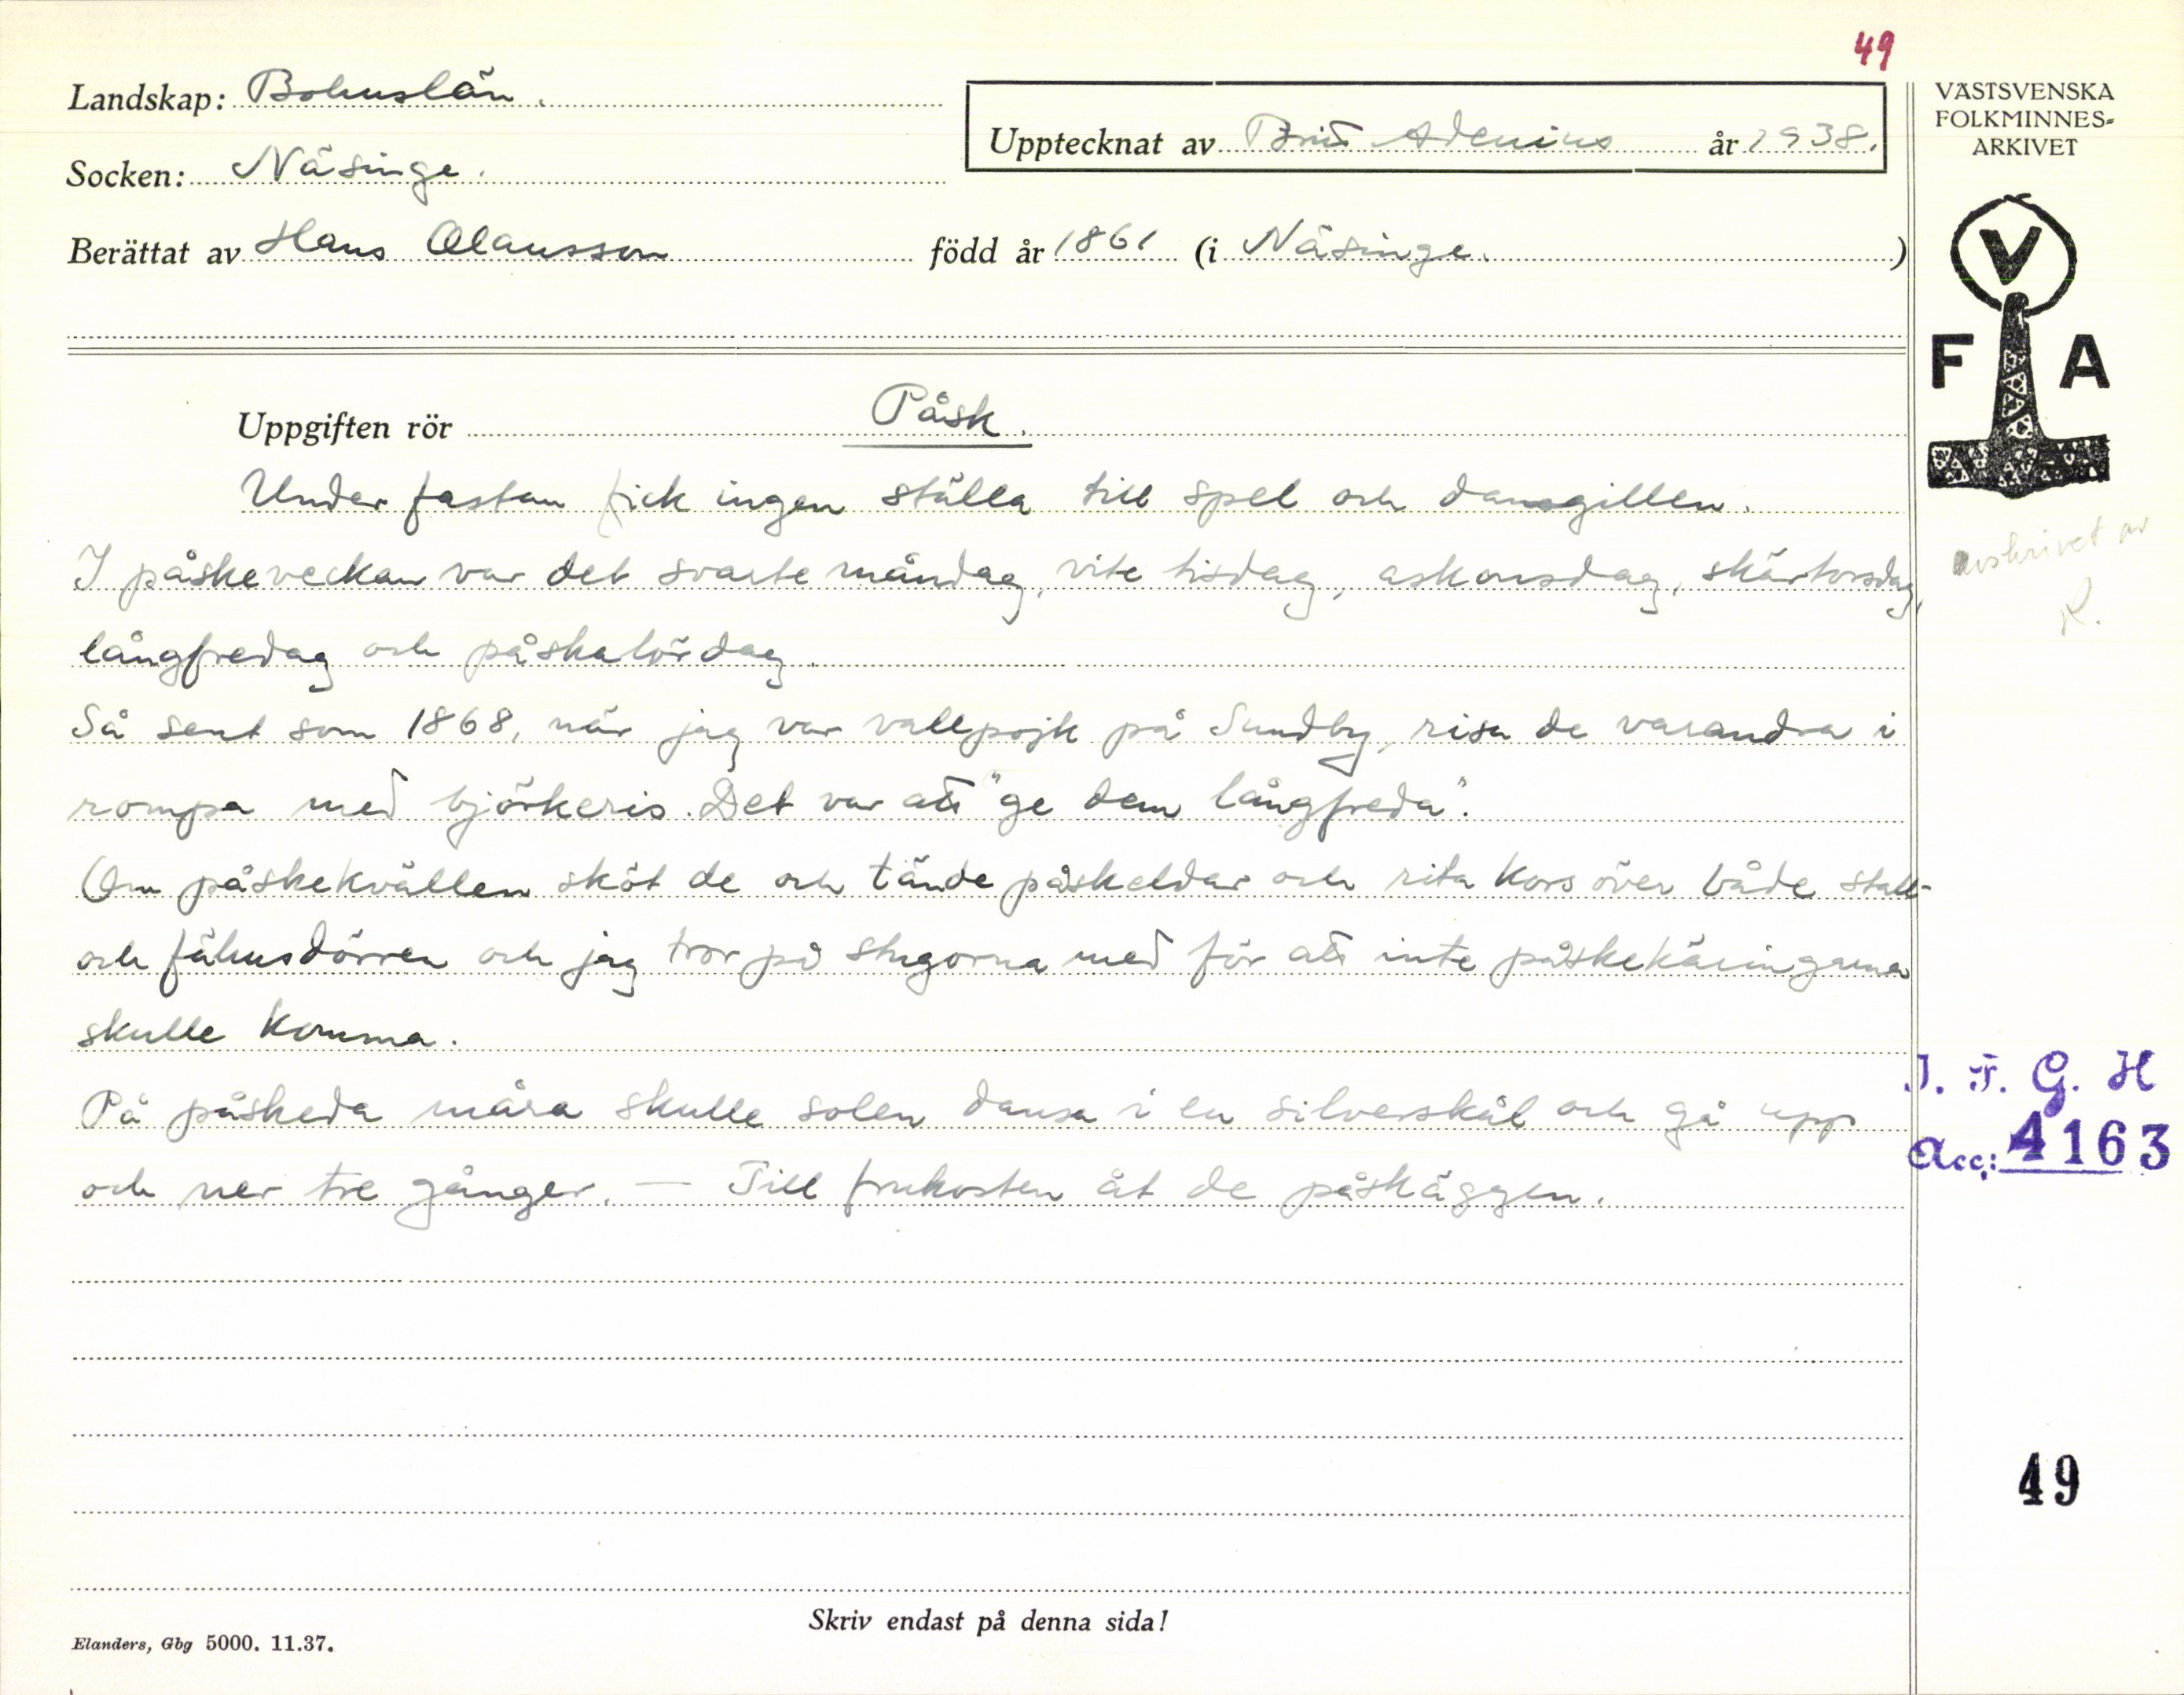 49
Landskap: Bohuslän.
Upptecknat av Brit Adenius år 1938.
Socken: Näsinge.
Berättat av Hans Olausson född år 1861 (i Näsinge. )
VÄSTSVENSKA
FOLKMINNES-
ARKIVET
V
F A
Uppgiften rör Påsk.
Under fastan fick ingen ställa till spel och dansgillen.
I påskeveckan var det svarte måndag, vite tisdag, askonsdag, skärtorsdag,
långfredag och påskalördag.
Så sent som 1868, när jag var vallpojk på Sundby, risa de varandra i
rompa med björkeris. Det var att "ge dem långfreda".
Om påskekvällen sköt de och tände påskeldar och rita kors över både stall-
och fähusdörren och jag tror på stugorna med för att inte påskekäringarna
skulle komma.
På påskeda måra skulle solen dansa i en silverskål och gå upp
och ner tre gånger. — Till frukosten åt de påskäggen.
avskrivet av
R.
I. F. G. H
Acc: 4163
49
Skriv endast på denna sida!
Elanders, Gbg 5000. 11.37.